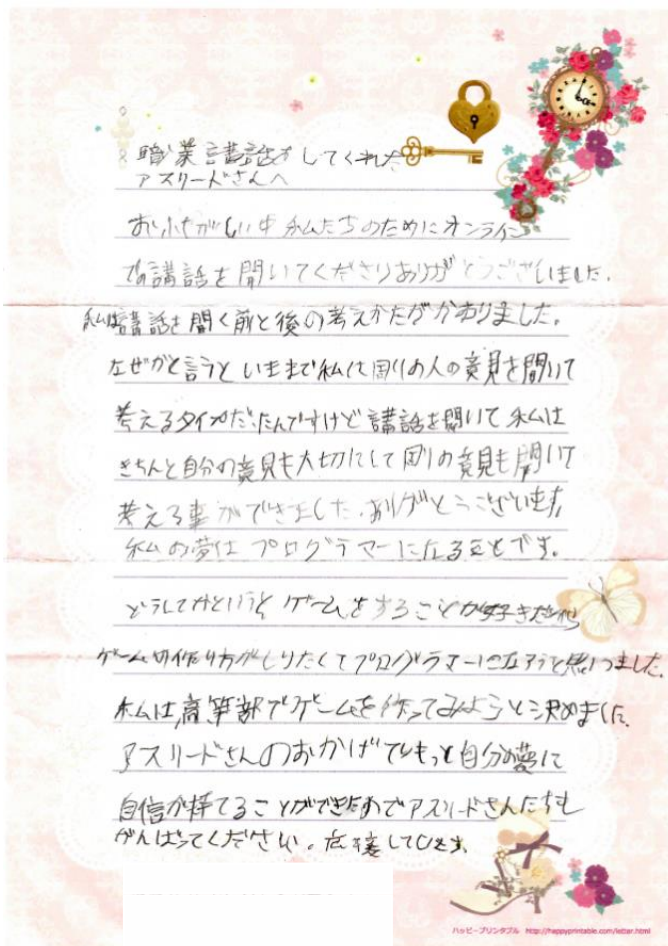 職業講話をしてくれた
アスリードさんへ
おいそがしい中 私たちのためにオンライン
での講話を開いてくださりありがとうございました。
私は講話を聞く前と後の考えかたがかわりました。
なぜかと言うといままで私は周りの人の意見を聞いて
考えるタイプだったんですけど講話を聞いて私は
きちんと自分の意見も大切にして周りの意見も聞いて
考える事ができました。ありがとうございます。
私の夢はプログラマーになることです。
どうしてかというとゲームをすることが好きだから
ゲームの作り方がしりたくてプログラマーになろうと思いました。
私は高等部でゲームを作ってみようと決めました。
アスリードさんのおかげでもっと自分の夢に
自信が持てることができたのでアスリードさんたちも
がんばってください。応援しています。
ハッピープリンタブル http://happyprintable.com/letter.html